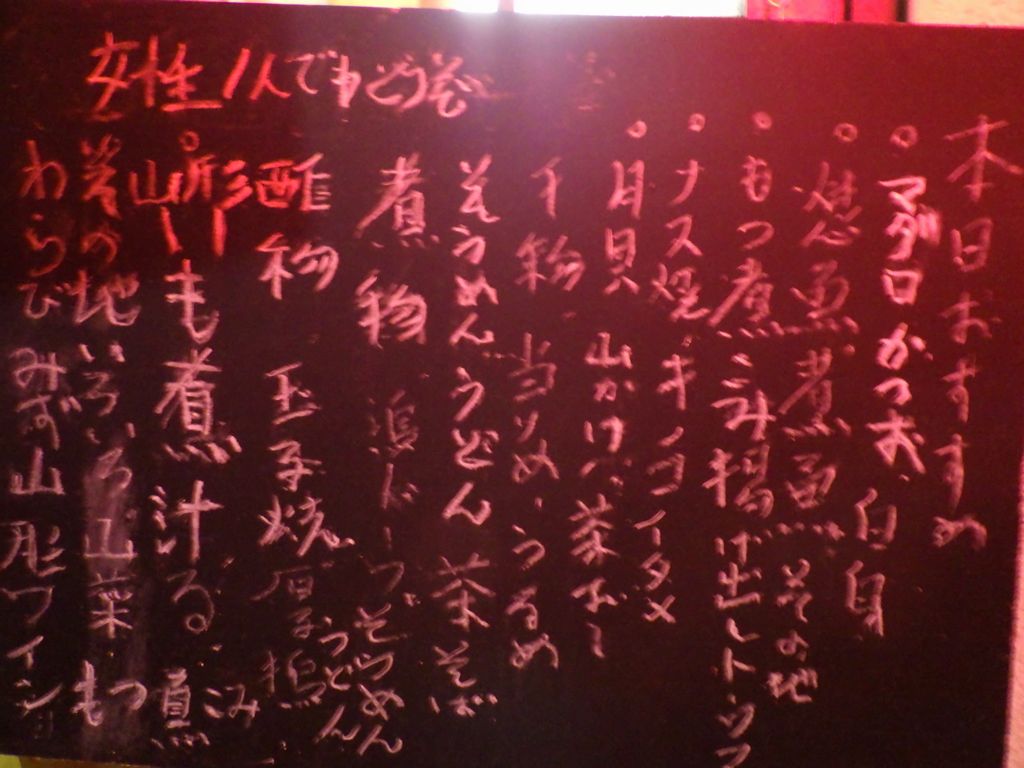 本日おすすめ
マグロ かつお 白身
魚煮魚 その他
もつ煮こみ 揚げ出しトーフ
ナス焼 キノコイタメ
月見 山かけ
干物 当め、うるめ
そうめんうどん 茶そば
煮物 そうめん うどん
酢物 玉子焼 厚子揚
山形いも煮汁る 煮こみ
その他いろいろ山菜 もつ
わらび みず 山形ワイン
女性1人でもどうぞ